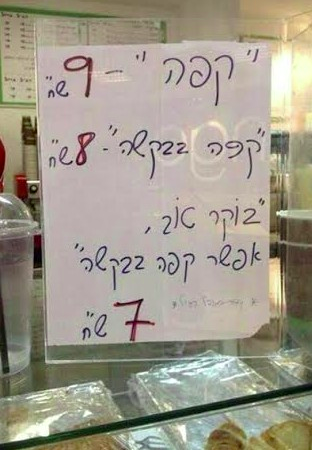 "קפה" - 9 ש"ח
"קפה בבקשה" - 8 ש"ח
"בוקר טוב,
אפשר קפה בבקשה"
7 ש"ח